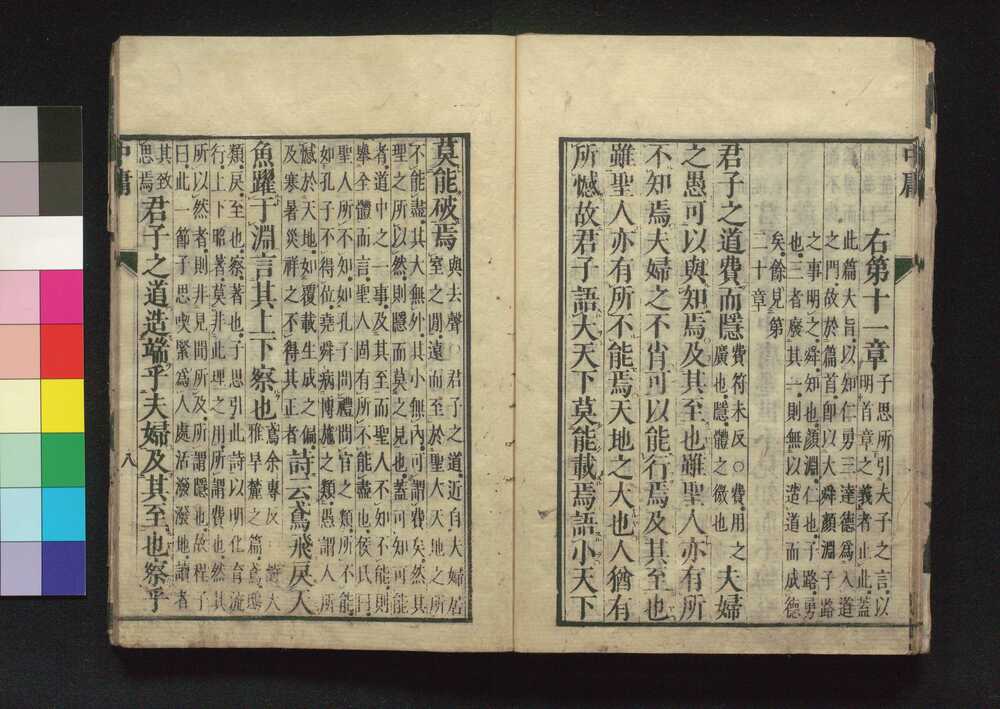 右第十一章 子思所引夫子之言以
明首章之義者止此蓋
此篇大旨以知仁勇三達德爲入道
之門故於篇首卽以大舜顏淵子路
之事明之舜知也顏淵仁也子路勇
也三者廢其一則無以造道而成德
矣餘見第
二十章
君子之道費而隱 費符未反○費用之
廣也隱體之微也 夫婦
之愚可以與知焉及其至也雖聖人亦有所
不知焉夫婦之不肖可以能行焉及其至也
雖聖人亦有所不能焉天地之大也人猶有
所憾故君子語大天下莫能載焉語小天下
莫能破焉 與去聲 君子之道近自夫婦居
室之閒遠而至於聖人天地之所
不能盡其大無外其小無內可謂費矣然其
理之所以然則隱而莫之見也蓋可知可能
者道中之一事及其至而聖人不知不能則
舉全體而言聖人固有所不能盡也侯氏曰
聖人所不知如孔子問禮問官之類所不能
如孔子不得位堯舜病博施之類愚謂人所
憾於天地如覆載生成之偏
及寒暑災祥之不得其正者 詩云鳶飛戾天
魚躍于淵言其上下察也 鳶余專反 詩大
雅旱麓之篇鳶鴟
類戾至也察著也子思引此詩以明化育流
行上下昭著莫非此理之用所謂費也然其
所以然者則非見聞所及所謂隱也故程子
曰此一節子思喫緊爲人處活潑潑地讀者
其致
思焉 君子之道造端乎夫婦及其至也察乎
中庸
八
中庸